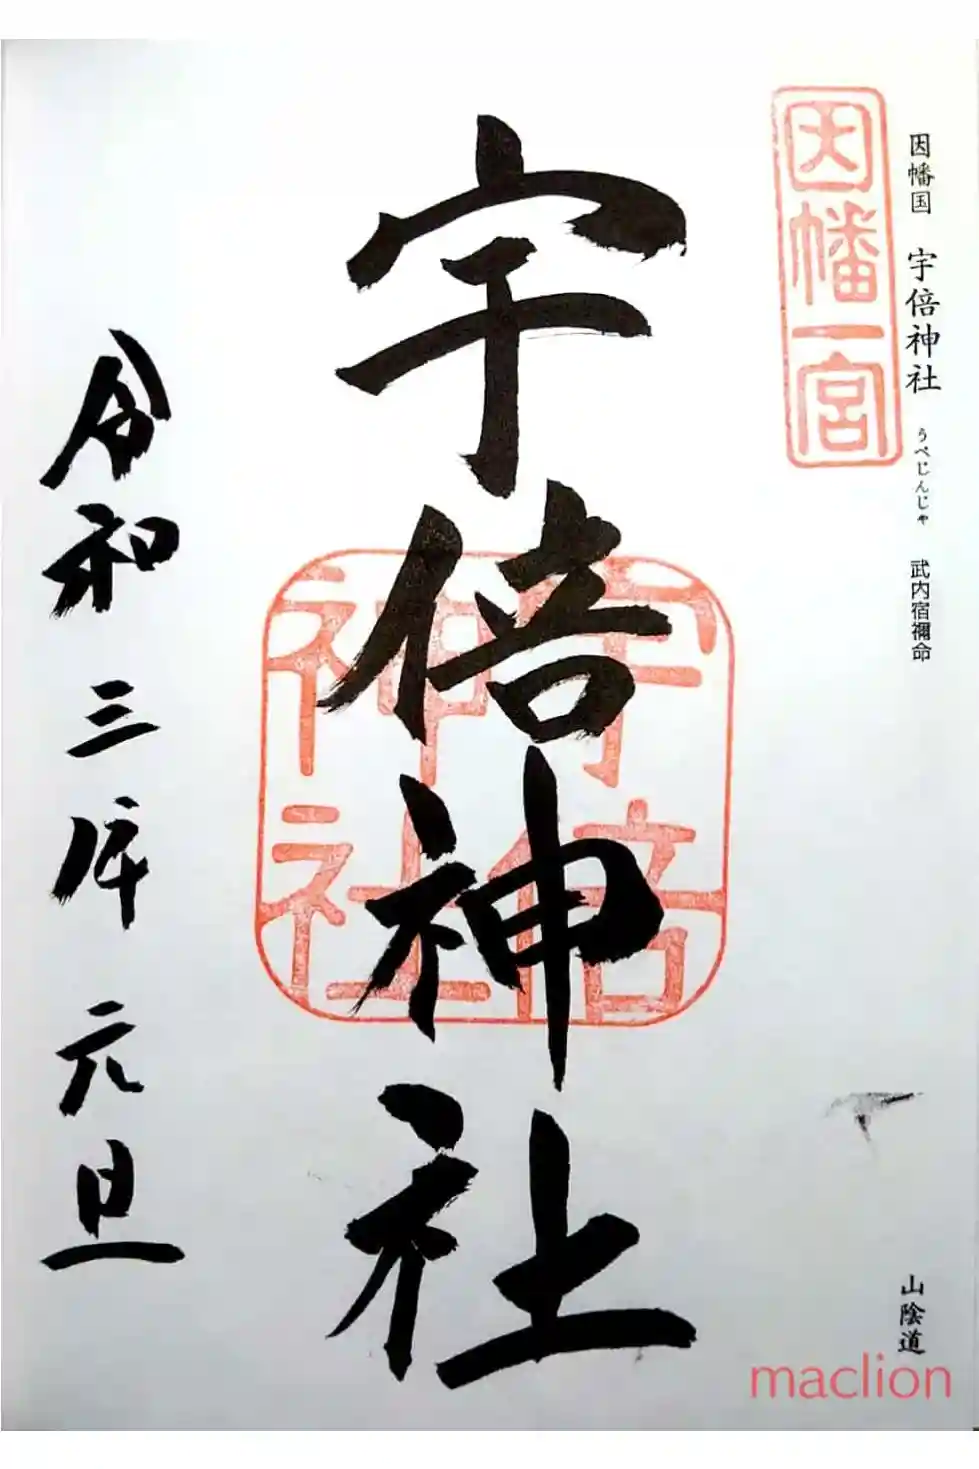 因幡国 宇倍神社 うべじんじゃ 武内宿禰命
山陰道
因幡一宮
宇倍神社
宇倍
神社
令和三年元旦
maclion